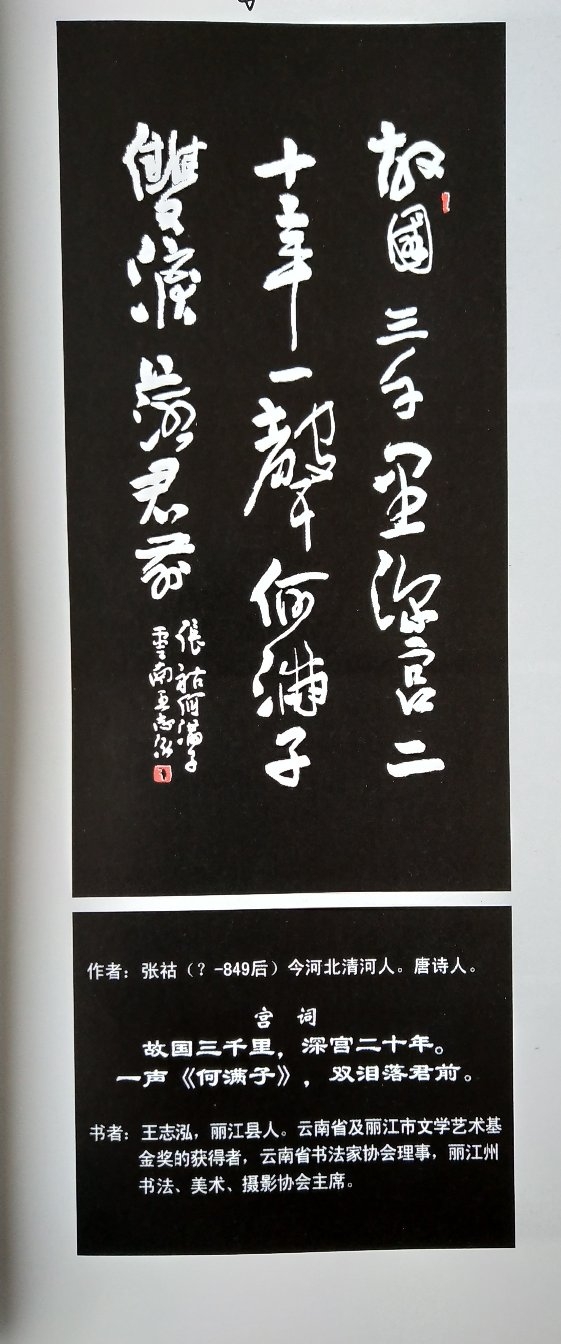 故國三千里深宫二
十年一聲何滿子
雙淚落君前
張祜何滿子
雲南王志泓
作者：张祜（？-849后）今河北清河人。唐诗人。
宫 词
故国三千里，深宫二十年。
一声《何满子》，双泪落君前。
书者：王志泓，丽江县人。云南省及丽江市文学艺术基
金奖的获得者，云南省书法家协会理事，丽江州
书法、美术、摄影协会主席。